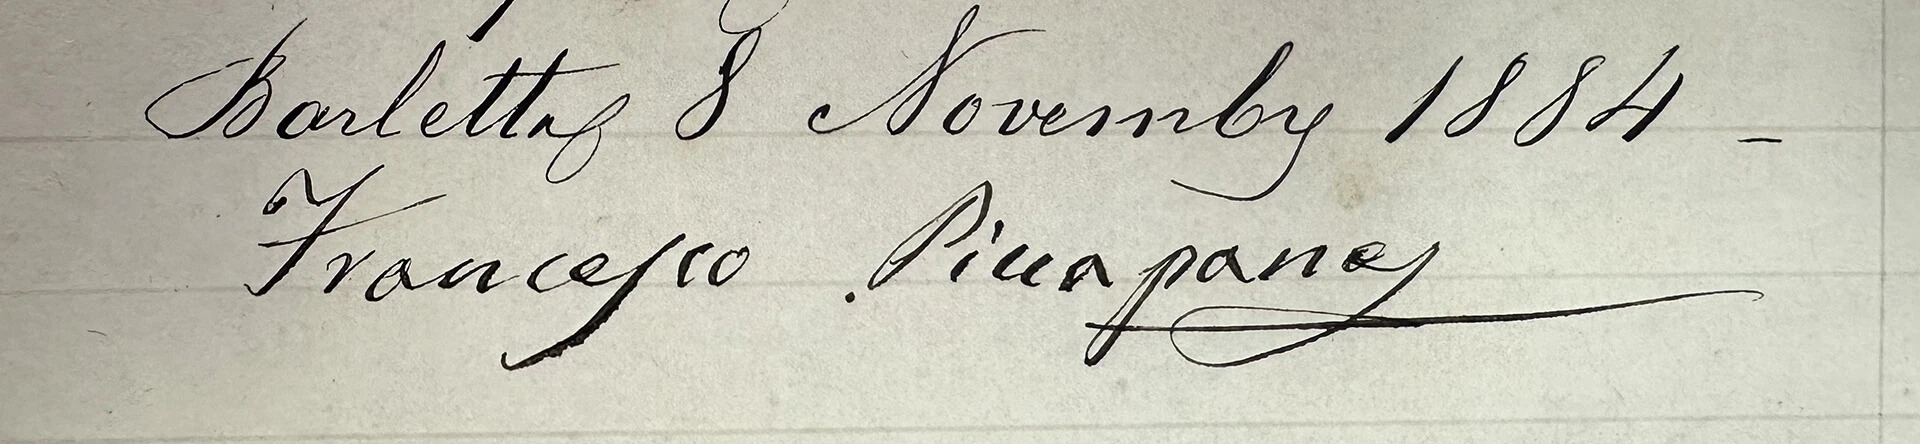 Barletta 8 Novembre 1884 -
Francesco Piccapane